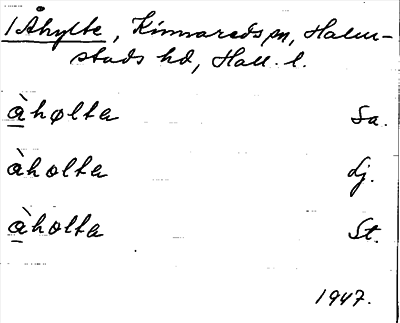 1 Åhylte, Kinnareds sn, Halm-
stads hd, Hall. l.
àhǫlta Sa.
àholta dj.
àholta St.
1947.